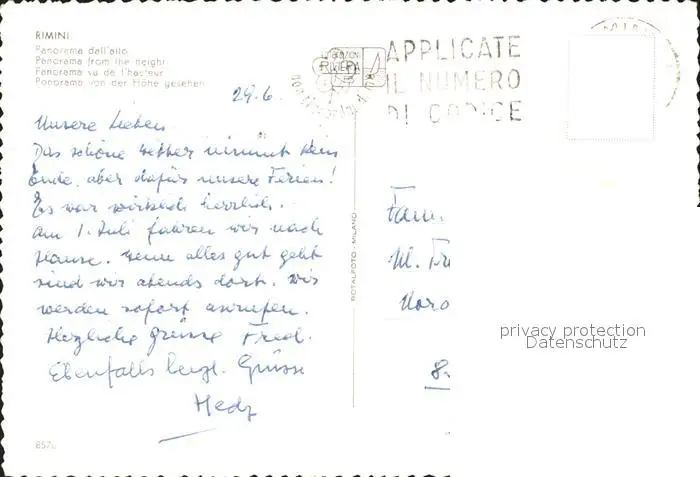 RIMINI
Panorama dall'alto
Panorama from the height
Panorama vu de l'hauteur
Panorama von der Höhe gesehen
APPLICATE
IL NUMERO
DI CODICE
29.6.
Unsere Lieben
Das schöne Wetter nimmt kein
Ende, aber dafür unsere Ferien!
Es war wirklich herrlich.
Am 1. Juli fahren wir nach
Hause. Wenn alles gut geht
sind wir abends dort. Wir
werden sofort anrufen.
Herzliche Grüsse Fried.
Ebenfalls herzl. Grüsse
Hedy
Fam.
ROTALFOTO - MILANO
privacy protection
Datenschutz
857